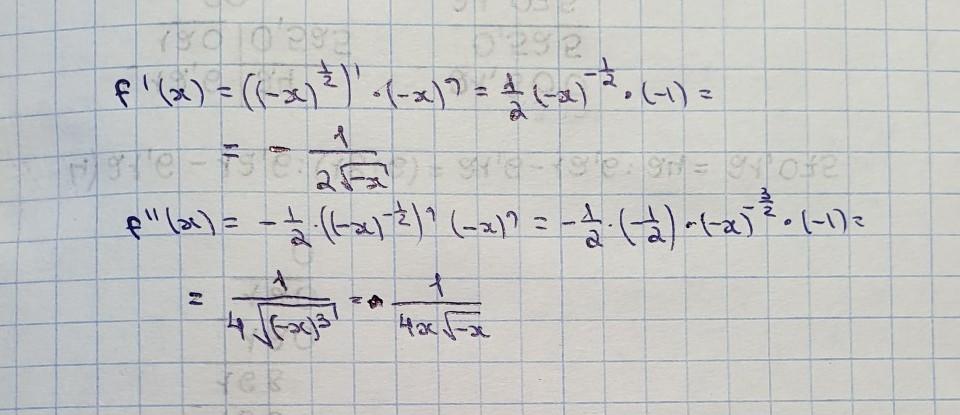 f'(x) = ((-x)^{1/2})' · (-x)' = 1/2 (-x)^{-1/2} · (-1) =
= - 1/(2√(-x))
f''(x) = -1/2 · ((-x)^{-1/2})' (-x)' = -1/2 · (-1/2) · (-x)^{-3/2} · (-1) =
= 1/(4√((-x)^3)) = - 1/(4x√(-x))